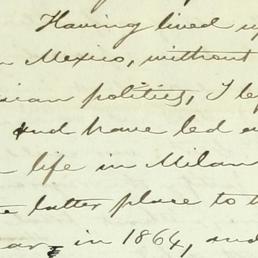 Having lived
Mexico, without
politics, I
and have led
life in Milan
latter place to
in 1864, and